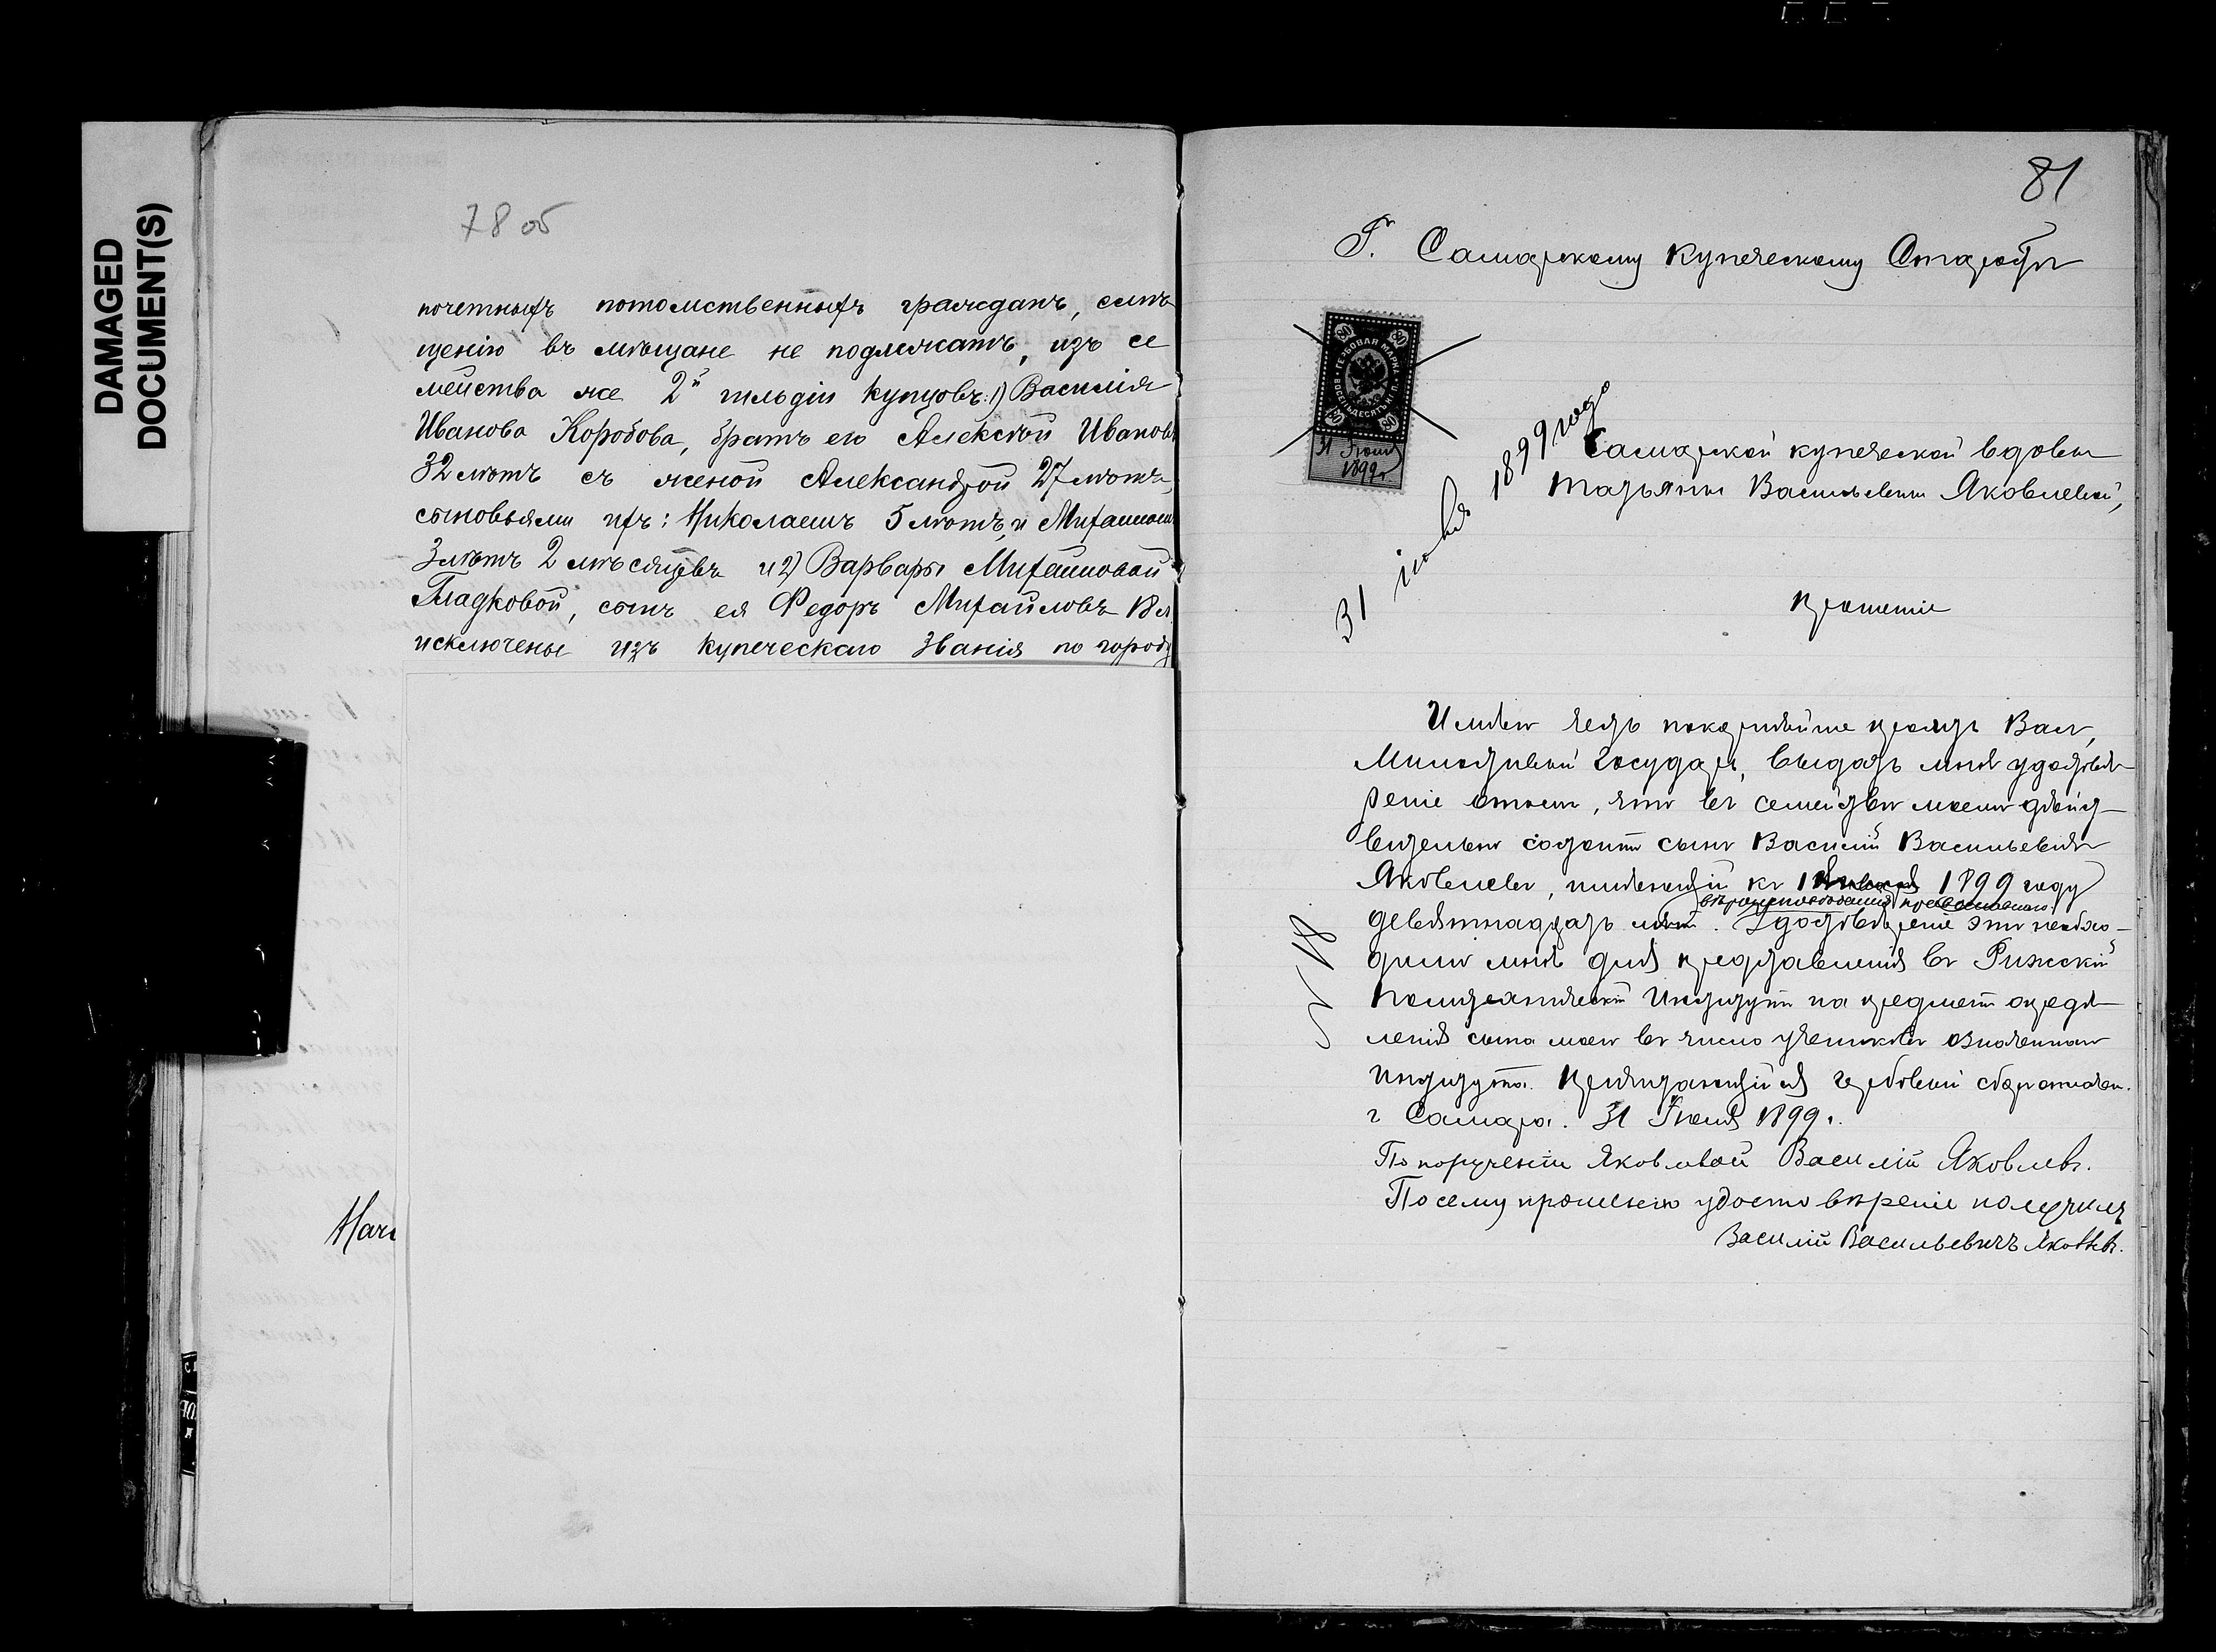 DAMAGED
DOCUMENT(S)
78 об
почетныхъ потомственныхъ гражданъ, сыпъ
щенію въ мѣщане не подлежатъ, изъ се
мейства же 2й гильдіи купцовъ: 1) Василія
Иванова Коробова, братъ его Алексѣй Иванов
32 лѣтъ съ женой Александрой 27 лѣтъ,
сыновьями ихъ: Николаемъ 5 лѣтъ, и Михаилом
3 лѣтъ 2 мѣсяцевъ и 2) Варвары Михайловой
Гладковой, сынъ ея Федоръ Михайловъ 18 л
исключены изъ купеческаго званія по городу
81
Г. Самарскому Купеческому Старостѣ
ГЕРБОВАЯ МАРКА
ВОСЕМЬДЕСЯТЪ КОП.
80 80 80 80
31 Іюля
1899 г.
31 іюля 1899 года
Самарской купеческой вдовы
Татьяны Васильевны Яковлевой,
Прошеніе
Имѣю честь покорнѣйше просить Васъ,
Милостивый Государь, выдать мнѣ удостовѣ-
реніе о томъ, что въ семействѣ моемъ дѣйст-
вительно состоитъ сынъ Василій Васильевичъ
Яковлевъ, имѣющій къ 1 1899 году
вѣроисповѣданія православнаго.
девятнадцать лѣтъ. Удостовѣреніе это необхо-
димо мнѣ для представленія въ Рижскій
Политехническій Институтъ на предметъ опредѣ-
ленія сына моего въ число учениковъ означеннаго
института. Причитающійся гербовый сборъ оплачен.
г Самара. 31 Іюля 1899 г.
По порученію Яковлевой Василій Яковлевъ.
По сему прошенію удостовѣреніе получилъ
Василій Васильевичъ Яковлевъ.